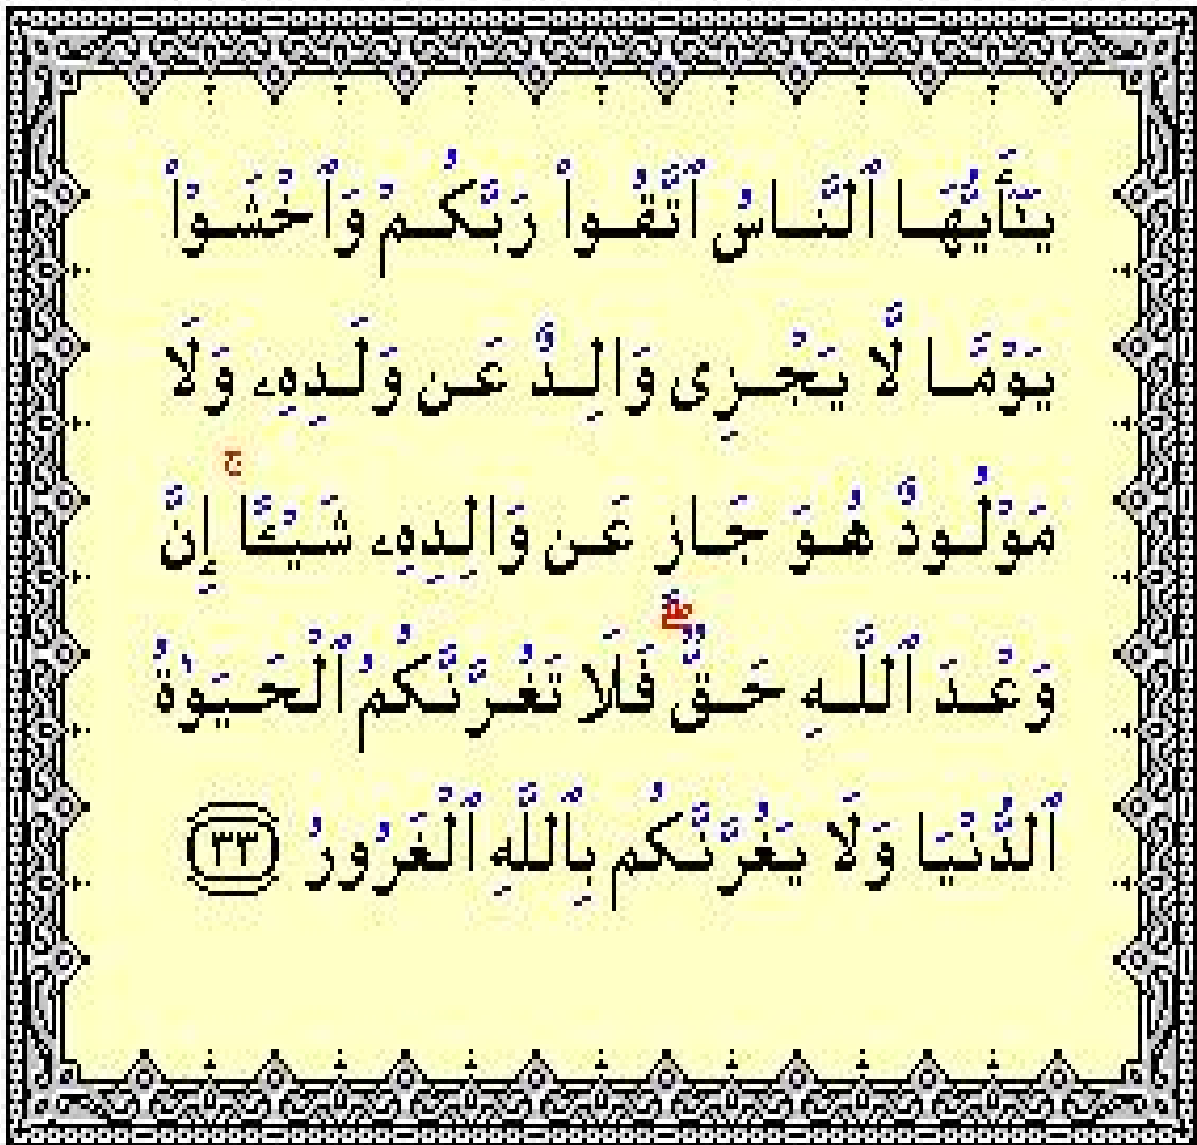 يَـٰٓأَيُّهَا ٱلنَّاسُ ٱتَّقُوا۟ رَبَّكُمْ وَٱخْشَوْا۟
يَوْمًا لَّا يَجْزِى وَالِدٌ عَن وَلَدِهِۦ وَلَا
مَوْلُودٌ هُوَ جَازٍ عَن وَالِدِهِۦ شَيْـًٔا ۚ إِنَّ
وَعْدَ ٱللَّهِ حَقٌّ ۖ فَلَا تَغُرَّنَّكُمُ ٱلْحَيَوٰةُ
ٱلدُّنْيَا وَلَا يَغُرَّنَّكُم بِٱللَّهِ ٱلْغَرُورُ ٣٣